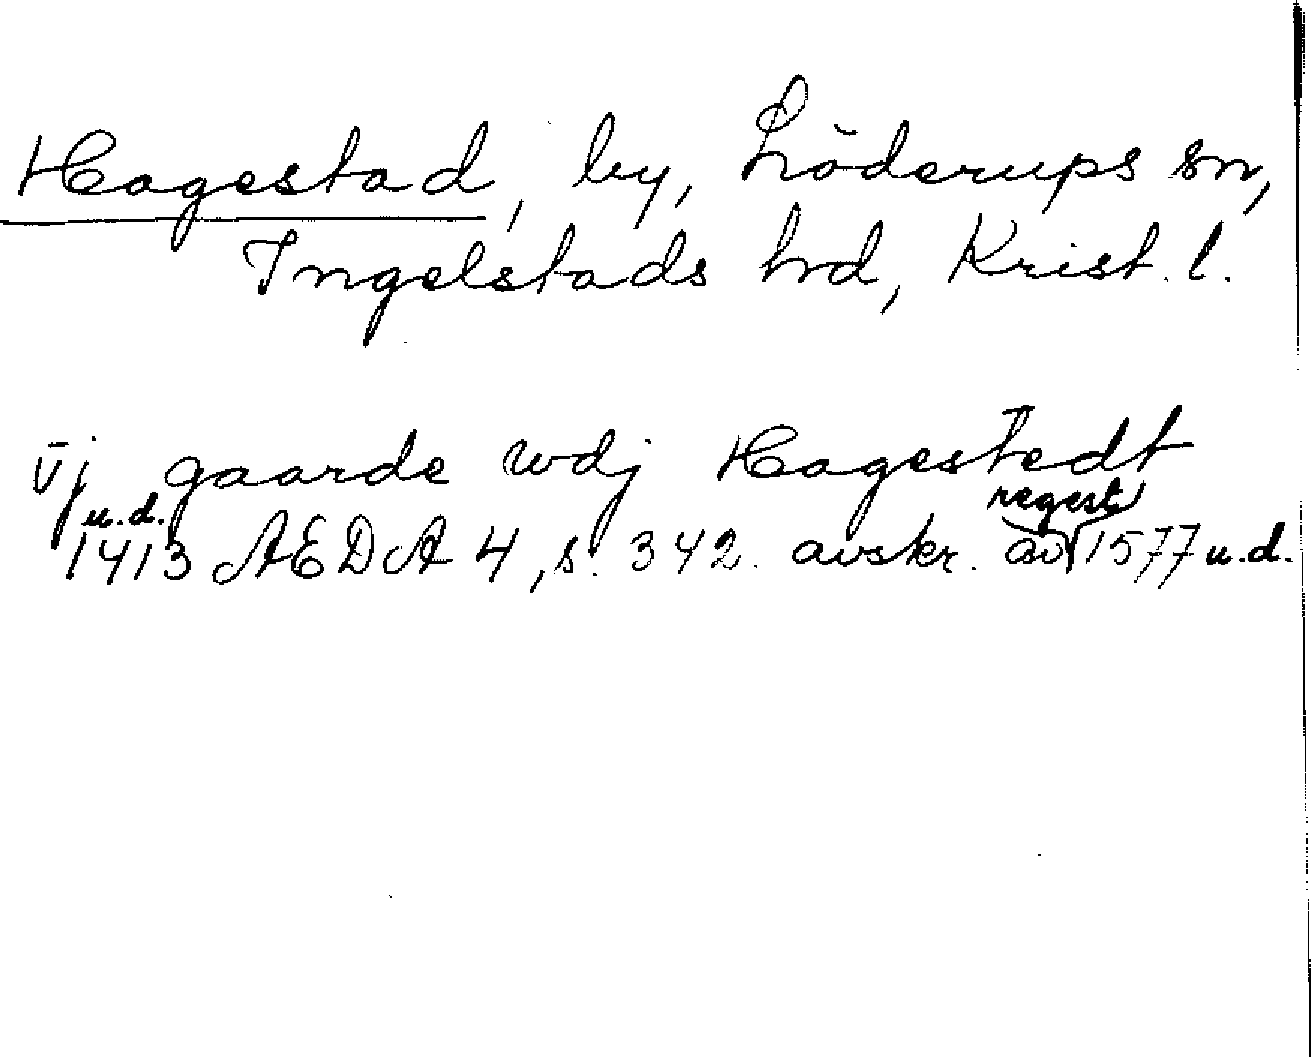 Hagestad, by, Löderups sn,
Ingelstads hd, Krist. l.
vj gaarde wdj Hagestedt
u.d. regest
1413 AEDA 4, s. 342. avskr. av 1577 u.d.